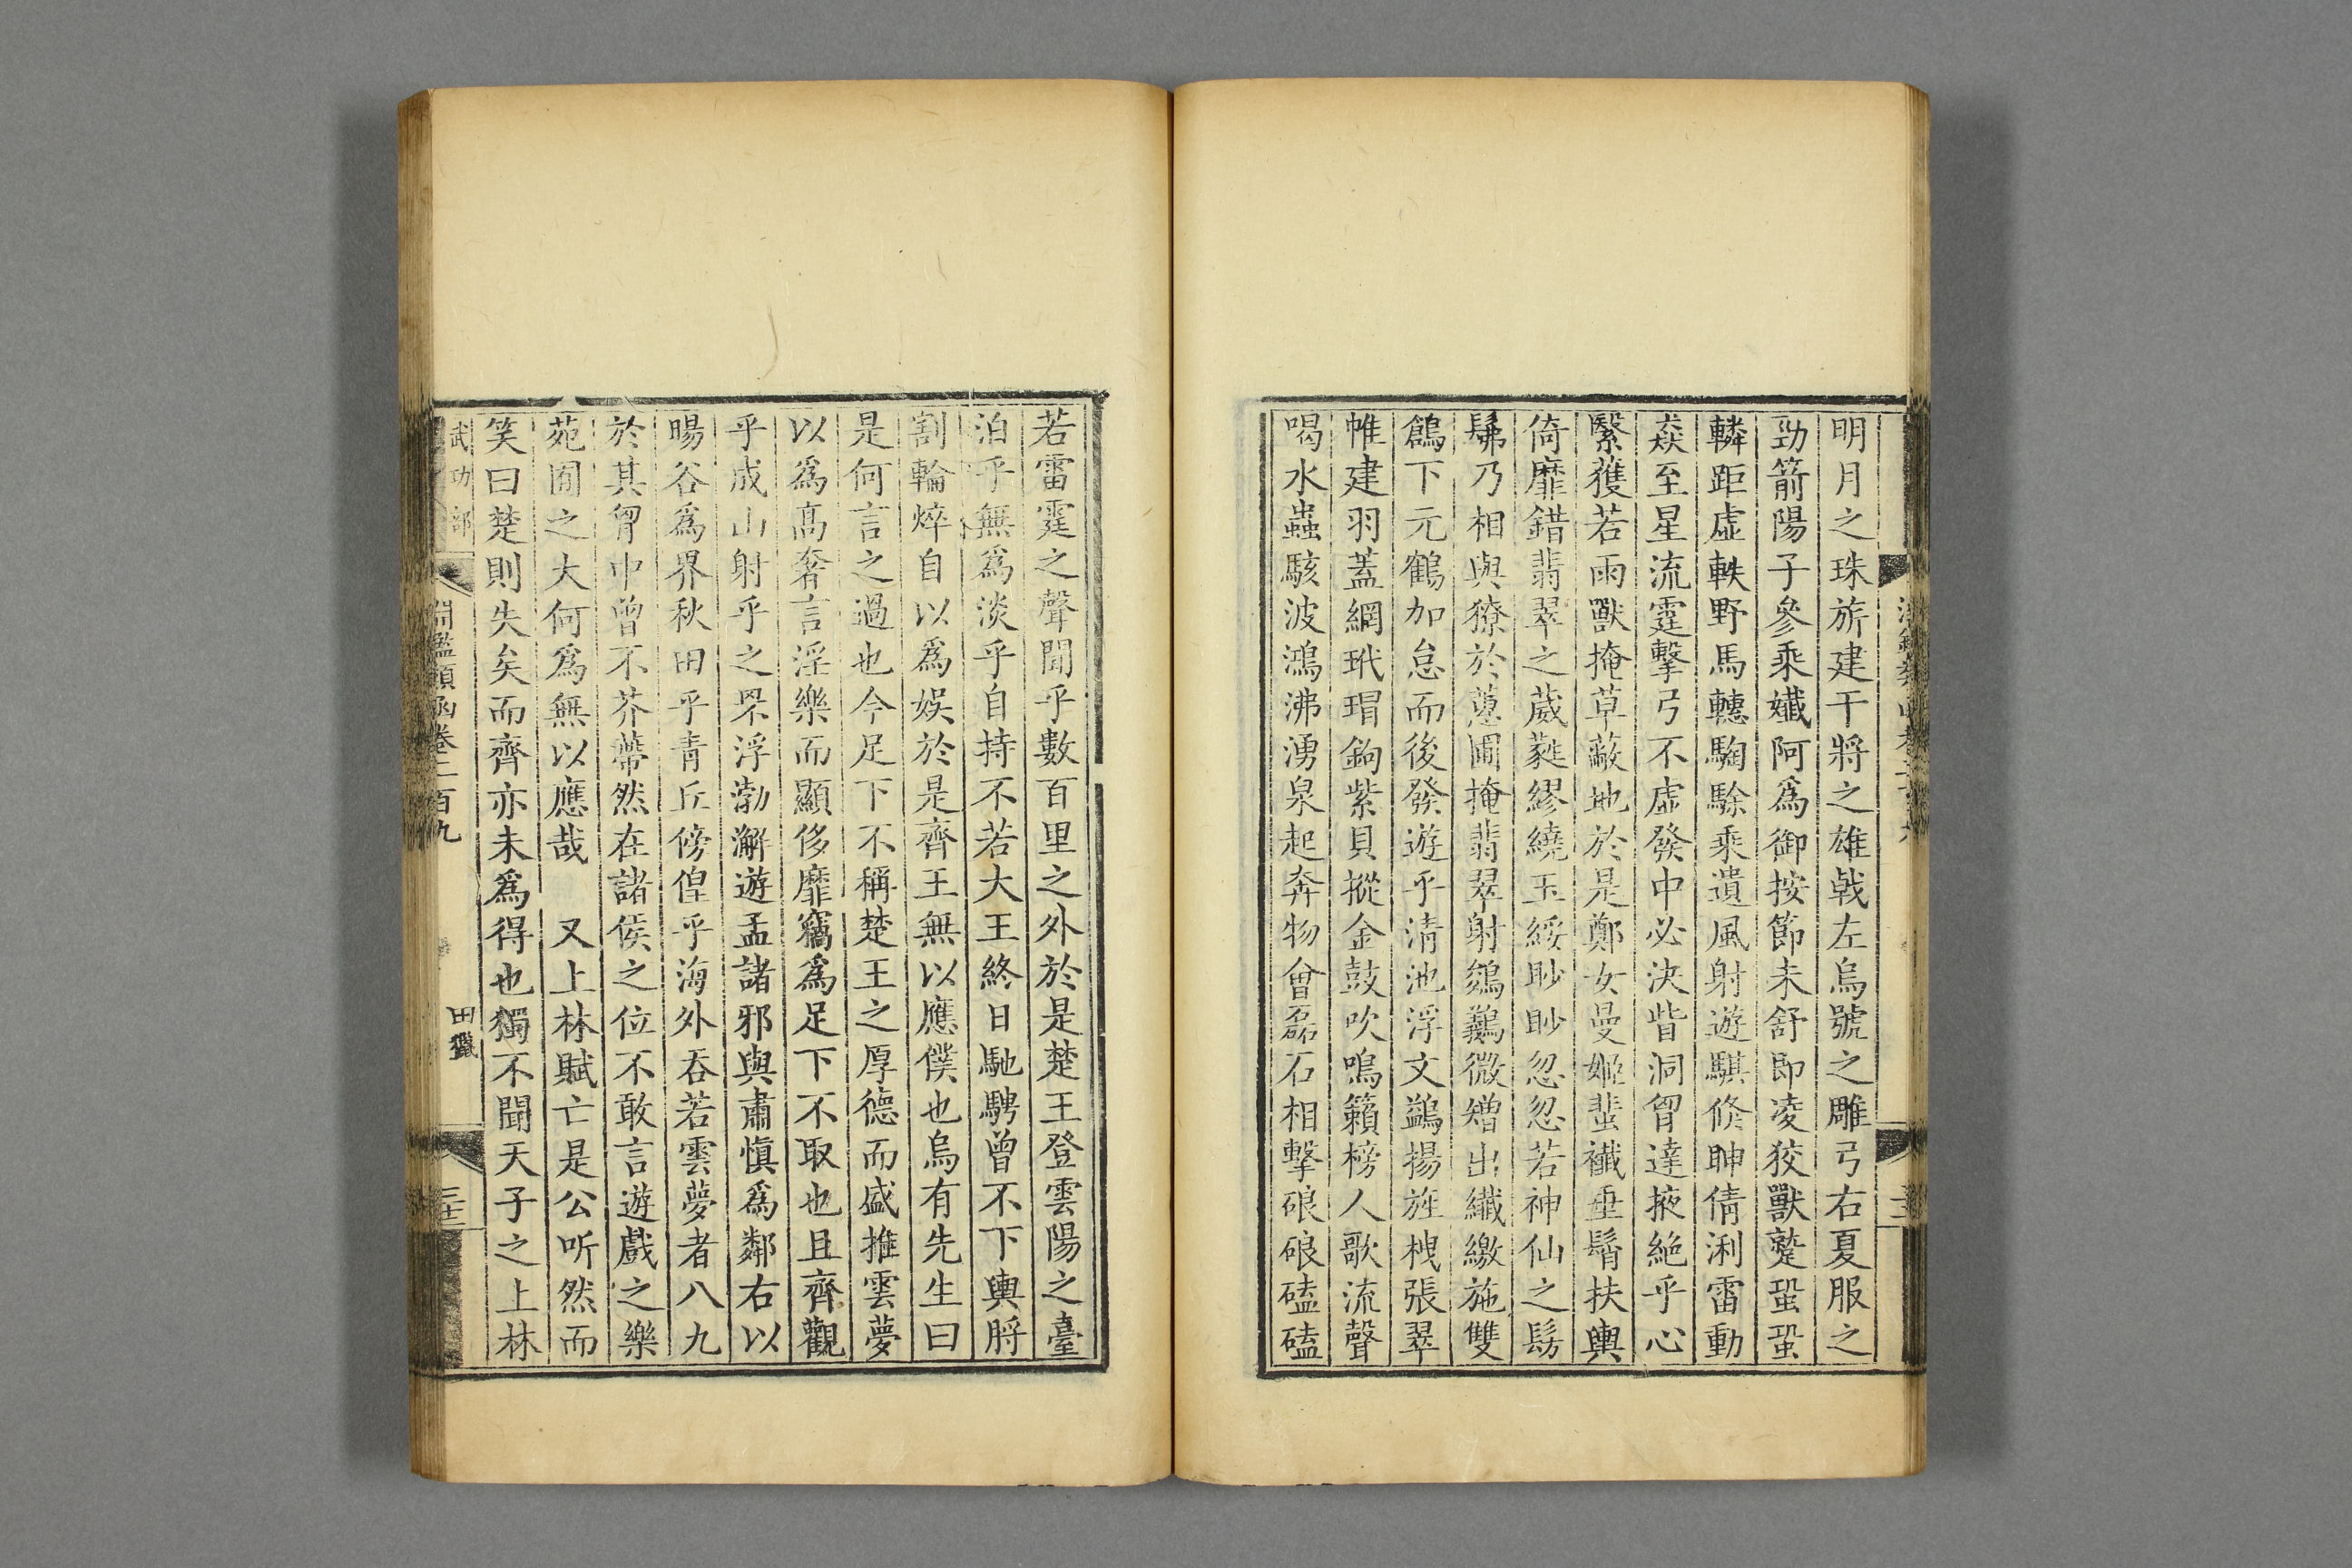 明月之珠旂建干將之雄戟左烏號之雕弓右夏服之
勁箭陽子參乘孅阿爲御按節未舒即凌狡獸蹵蛩蛩
轔距虛軼野馬轊騊駼乘遺風射遊騏倏眒倩浰雷動
猋至星流霆擊弓不虛發中必決眥洞胷達掖絶乎心
繫獲若雨獸掩草蔽地於是鄭女曼姬蜚襳垂髾扶輿
倚靡錯翡翠之葳蕤繆繞玉綏眇眇忽忽若神仙之髣
髴乃相與獠於蕙圃掩翡翠射鵕鸃微矰出纎繳施雙
鶬下元鶴加怠而後發遊乎清池浮文鷁揚旌栧張翠
帷建羽蓋網玳瑁鉤紫貝摐金鼓吹鳴籟榜人歌流聲
喝水蟲駭波鴻沸湧泉起奔物㑹磊石相擊硠硠磕磕
若雷霆之聲聞乎數百里之外於是楚王登雲陽之臺
泊乎無爲淡乎自持不若大王終日馳騁曾不下輿脟
割輪焠自以爲娛於是齊王無以應僕也烏有先生曰
是何言之過也今足下不稱楚王之厚德而盛推雲夢
以爲髙奢言淫樂而顯侈靡竊爲足下不取也且齊觀
乎成山射乎之罘浮渤澥遊孟諸邪與肅慎爲鄰右以
暘谷爲界秋田乎青丘傍偟乎海外吞若雲夢者八九
於其胷中曾不芥蔕然在諸侯之位不敢言遊戲之樂
苑囿之大何爲無以應哉　又上林賦亡是公听然而
笑曰楚則失矣而齊亦未爲得也獨不聞天子之上林
武功部　淵鑑類函卷二百九　田獵　三十三